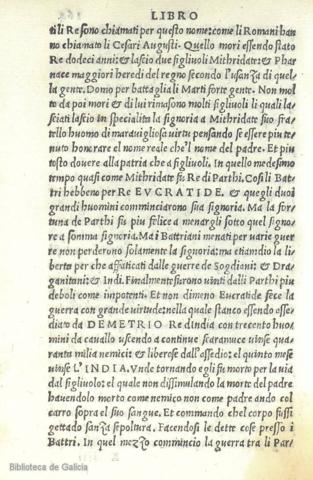 LIBRO
tili Re sono chiamati per questo nome: come li Romani han
no chiamato li Cesari Augusti. Quello mori essendo stato
Re dodeci anni: & lascio due figliuoli Mithridate: & Phar
nace maggiori heredi del regno secondo l'usanza di quel
la gente. Domo per battaglia li Marti forte gente. Non mol
to da poi mori & di lui rimasono molti figliuoli li quali la
sciati lascio in specialita la signoria a Mithridate suo fra
tello huomo di maravigliosa virtu pensando se essere piu te
nuto honorare el nome reale che'l nome del padre. Et piu
tosto dovere alla patria che a figliuoli. In quello medesimo
tempo quasi come Mithridate fu Re di Parthi. Cosi li Bat
tri hebbeno per Re EVCRATIDE. & quegli duoi
grandi huomini comminciarono sua signoria. Ma la for
tuna de Parthi fu piu felice a menargli sotto quel signo
re a somma signoria. Ma i Battriani menati per varie guer
re non perderono solamente la signoria: ma etiamdio la li
berta per che affaticati dalle guerre de Sogdiani: & Dra
ganitani: & Indi. Finalmente furono vinti dalli Parthi piu
deboli come impotenti. Et non dimeno Eucratide fece la
guerra con grande virtude: nella quale stanco essendo esse
diato da DEMETRIO Re d india con trecento huo
mini da cavallo uscendo a continue scaramuce uinse qua
ranta milia nemici: & liberose dall'assedio: el quinto mese
uinse L'INDIA. Vnde tornando egli fu morto per la uia
dal figliuolo: el quale non dissimulando la morte del padre
havendolo morto come nemico non come padre ando col
carro sopra el suo sangue. Et commando chel corpo fussi
gettado sanza sepoltura. Facendosi le dette cose presso i
Battri. In quel mezzo commincio la guerra tra li Par/
Biblioteca de Galicia